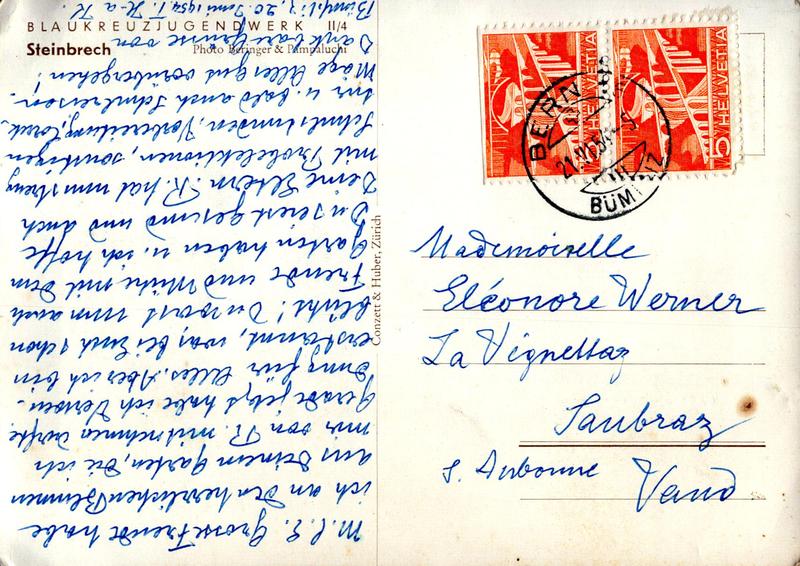 BLAUKREUZJUGENDWERK II/4
Steinbrech
Photo Beringer & Pampaluchi
M. l. E. Grosse Freude habe
ich an den herrlichen Blumen
aus Deinem Garten, die ich
mir von R. mitnehmen durfte.
Gerade jetzt habe ich Verwen-
dung für Alles. Aber ich bin
erstaunt, was bei Euch schon
blüht! Du wirst nun auch
Freude und Mühe mit dem
Garten haben u. ich hoffe
Du seiest gesund und auch
Deine Eltern. R. hat nun streng
mit Probelektionen, sonstigen
Schulstunden, Vorbereitung,
u. bald auch Schulreisen.
Möge Alles gut vorübergehen!
Dankbare Grüsse von
Bümpliz, 20. Juni 1954
Conzett & Huber, Zürich
HELVETIA
5 HELVETIA
BERN
21.VI.54
BÜMPLIZ
Mademoiselle
Eléonore Werner
La Vignettaz
Saubraz
s. Aubonne
Vaud